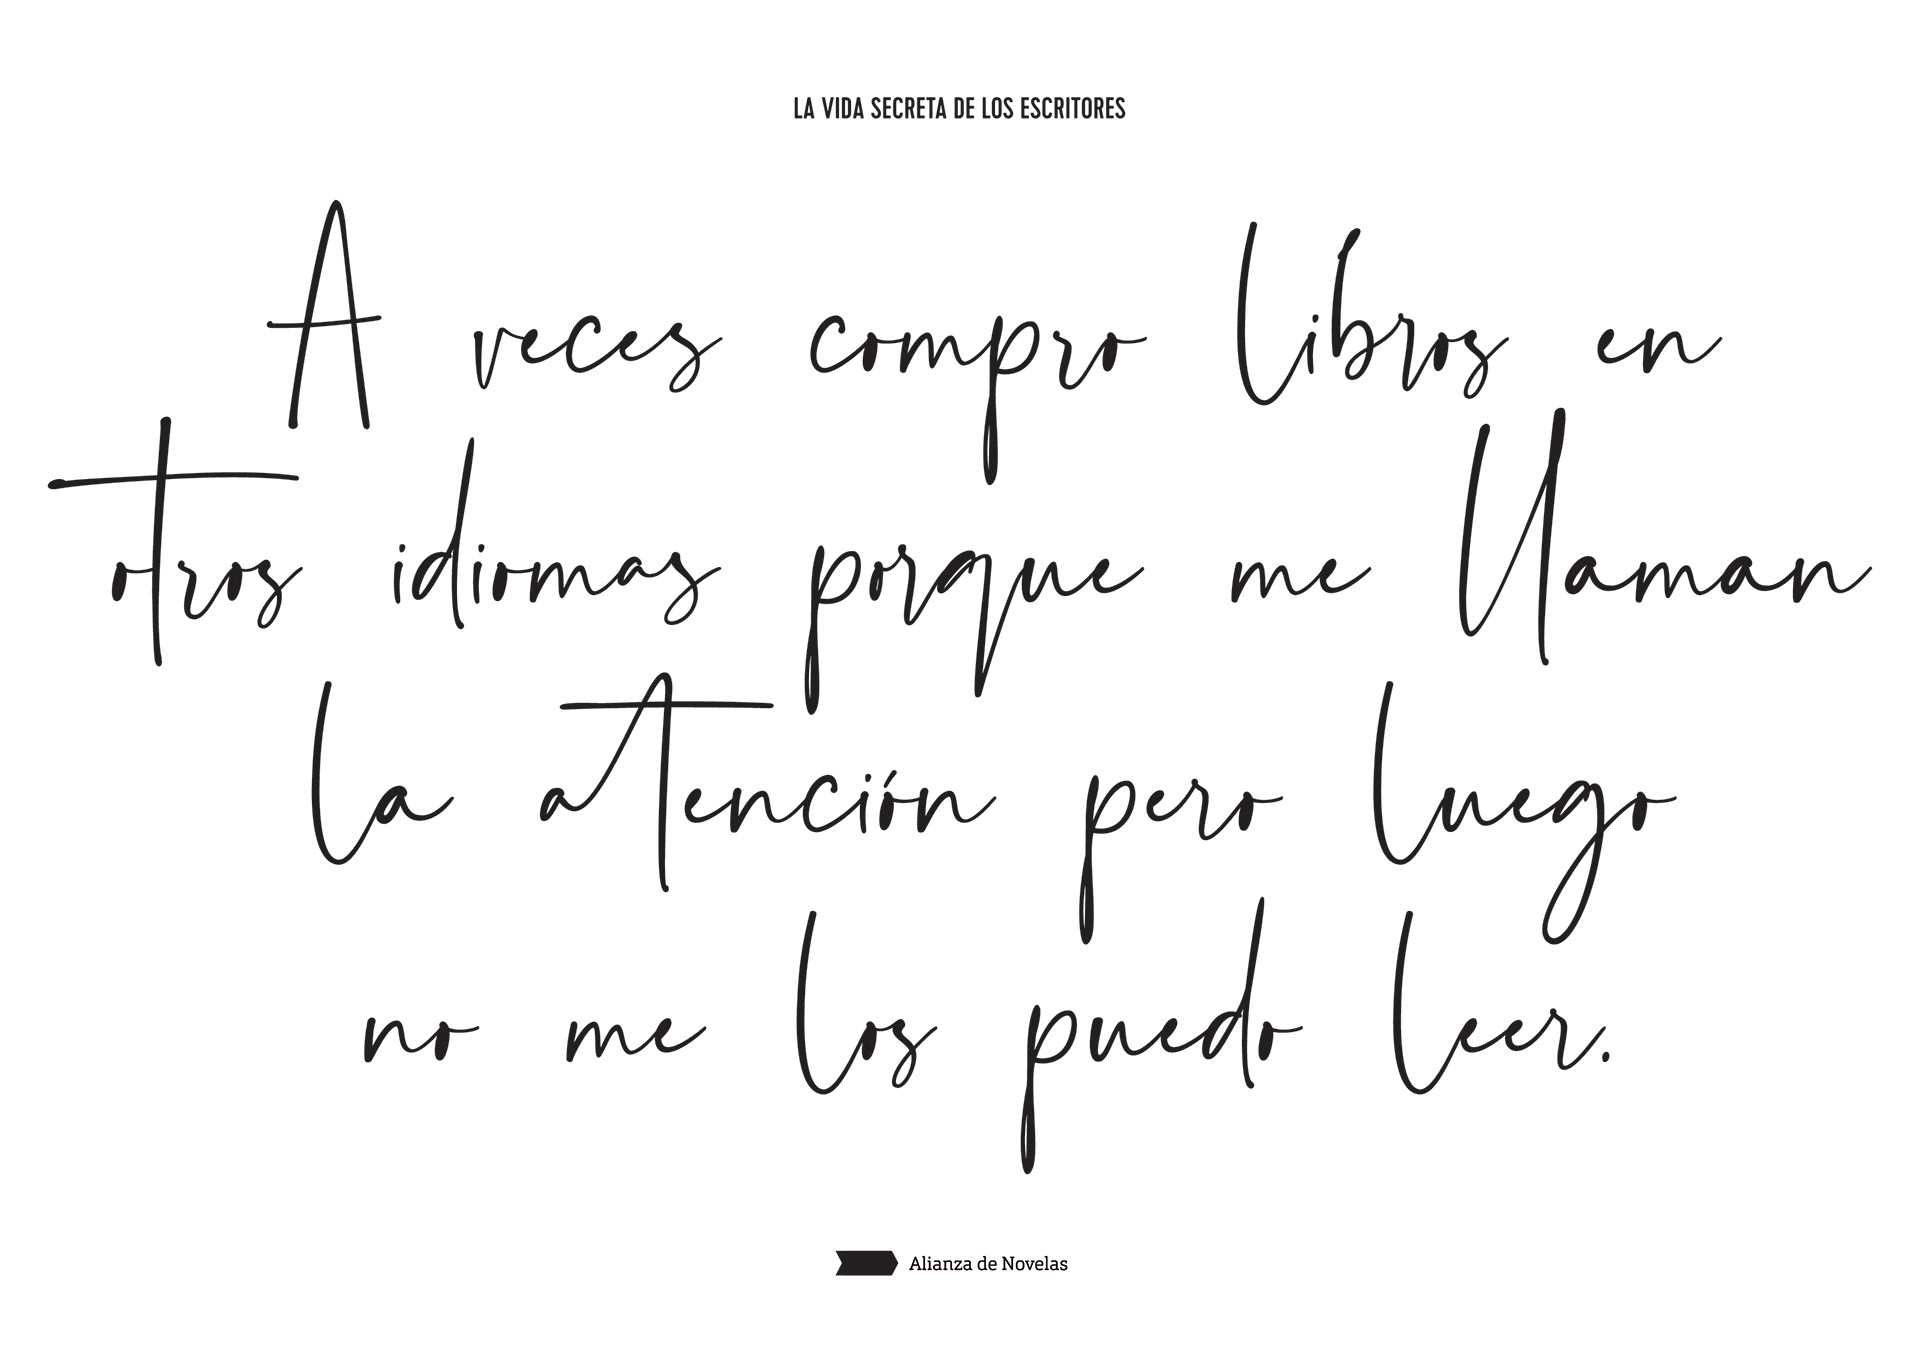 LA VIDA SECRETA DE LOS ESCRITORES
A veces compro libros en
otros idiomas porque me llaman
la atención pero luego
no me los puedo leer.
Alianza de Novelas